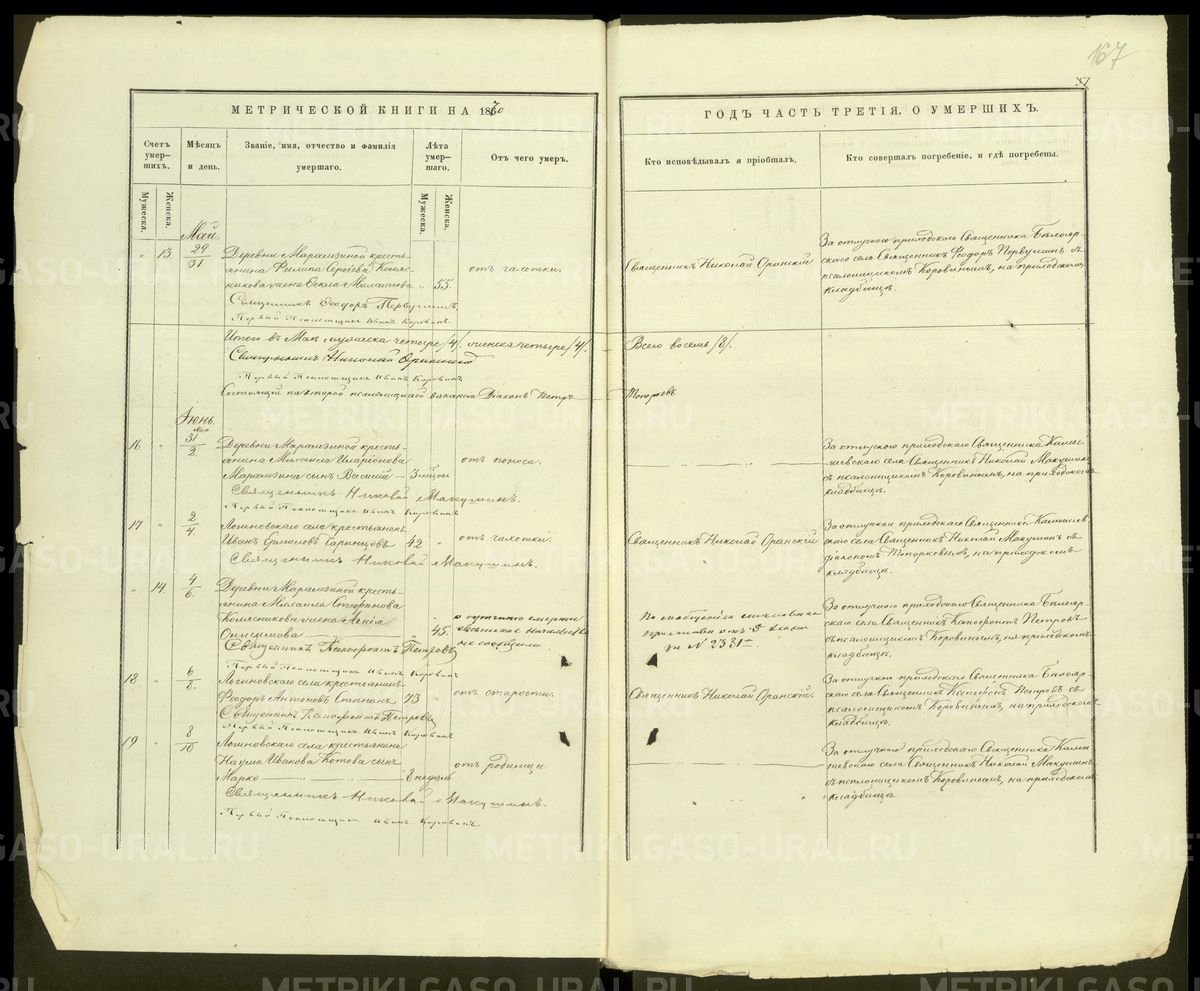 167
МЕТРИЧЕСКОЙ КНИГИ НА 1870
ГОДЪ ЧАСТЬ ТРЕТІЯ, О УМЕРШИХЪ.
Счетъ умер-шихъ.
Мѣсяцъ и день.
Званіе, имя, отчество и фамилія умершаго.
Лѣта умер-шаго.
Отъ чего умеръ.
Кто исповѣдывалъ и пріобщалъ.
Кто совершалъ погребеніе, и гдѣ погребены.
Мужеска.
Женска.
Мужеска.
Женска.
Май.
13.
29
31.
Деревни Марамзиной кресть-
янина Филипа Сергѣева
жена Михаилова 55.
отъ чахотки.
Священникъ Николай Оранскій
За отпускомъ приходскаго Священника Бѣлояр-
скаго села Священникъ Феодоръ Первушинъ съ
псаломщикомъ Коровинымъ, на приходскомъ
кладбищѣ.
Священникъ Феодоръ Первушинъ.
Первый Псаломщикъ Иванъ Коровинъ.
Итого въ Маѣ мужеска четыре /4/. женска четыре /4/.
Всего восемь /8/.
Священникъ Николай Оранскій
Первый Псаломщикъ Иванъ Коровинъ
Состоящій на второй псаломщицкой вакансіи Діаконъ Петръ
Топорковъ
Іюнь.
16
мая
31
2.
Деревни Марамзиной кресть-
янина Михаила Иларіонова
Марамзина сынъ Василій 3 мѣсяц.
отъ поноса.
За отпускомъ приходскаго Священника Камы-
шевскаго села Священникъ Николай Макушинъ
съ псаломщикомъ Коровинымъ, на приходскомъ
кладбищѣ.
Священникъ Николай Макушинъ.
Первый Псаломщикъ Иванъ Коровинъ
17
2
4.
Логиновскаго села крестьянинъ
Иванъ 42
отъ чахотки.
Священникъ Николай Оранскій
За отпускомъ приходскаго Священника Камышев-
скаго села Священникъ Николай Макушинъ съ
діакономъ Топорковымъ, на приходскомъ
кладбищѣ.
Священникъ Николай Макушинъ.
14.
4
6.
Деревни Марамзиной кресть-
янина Михаила Стефанова
жена
45.
№ 2381
За отпускомъ приходскаго Священника Бѣлояр-
скаго села Священникъ Ксенофонтъ Петровъ
съ псаломщикомъ Коровинымъ, на приходскомъ
кладбищѣ.
Священникъ Ксенофонтъ Петровъ
Первый Псаломщикъ Иванъ Коровинъ
18
6
8.
Логиновскаго села крестьянинъ
Феодоръ Антоновъ 73
отъ старости.
Священникъ Николай Оранскій.
За отпускомъ приходскаго Священника Бѣлояр-
скаго села Священникъ Ксенофонтъ Петровъ съ
псаломщикомъ Коровинымъ, на приходскомъ
кладбищѣ.
Священникъ Ксенофонтъ Петровъ
Первый Псаломщикъ Иванъ Коровинъ
19
8
10
Логиновскаго села крестьянина
Наума Иванова Котова сынъ
Марко 8 недѣль
отъ родимца
За отпускомъ приходскаго Священника Камы-
шевскаго села Священникъ Николай Макушинъ
съ псаломщикомъ Коровинымъ, на приходскомъ
кладбищѣ.
Священникъ Николай Макушинъ.
Первый Псаломщикъ Иванъ Коровинъ
METRIKI.GASO-URAL.RU